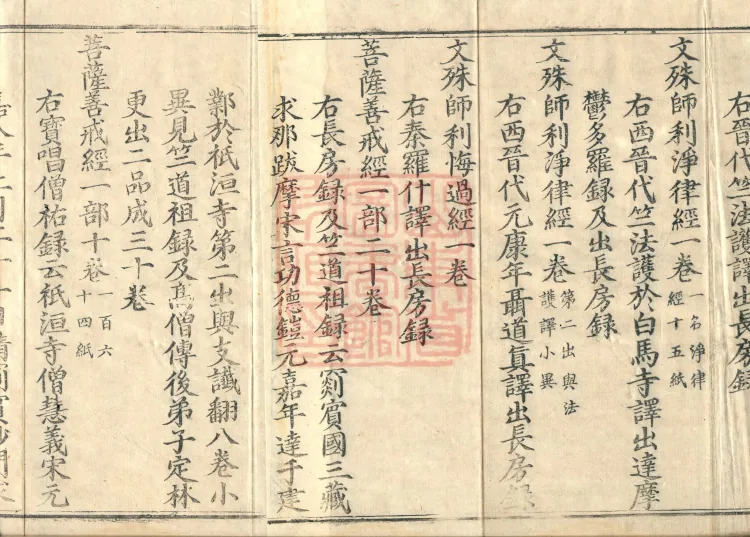 右晉代竺法護譯出長房録
文殊師利淨律經一卷 一名淨律經十五紙
右西晉代竺法護於白馬寺譯出達摩
鬱多羅録及出長房録
文殊師利淨律經一卷 第二出與法護譯小異
右西晉代元康年聶道真譯出長房録
文殊師利悔過經一卷
右秦羅什譯出長房録
菩薩善戒經一部二十卷
右長房録及竺道祖録云罽賓國三藏
求那跋摩宋言功德鎧元嘉年達于建
鄴於祇洹寺第二出與支讖翻八卷小
異見竺道祖録及髙僧傳後弟子定林
更出二品成三十卷
菩薩善戒經一部十卷 一百六十四紙
右寶唱僧祐録云祇洹寺僧慧義宋元